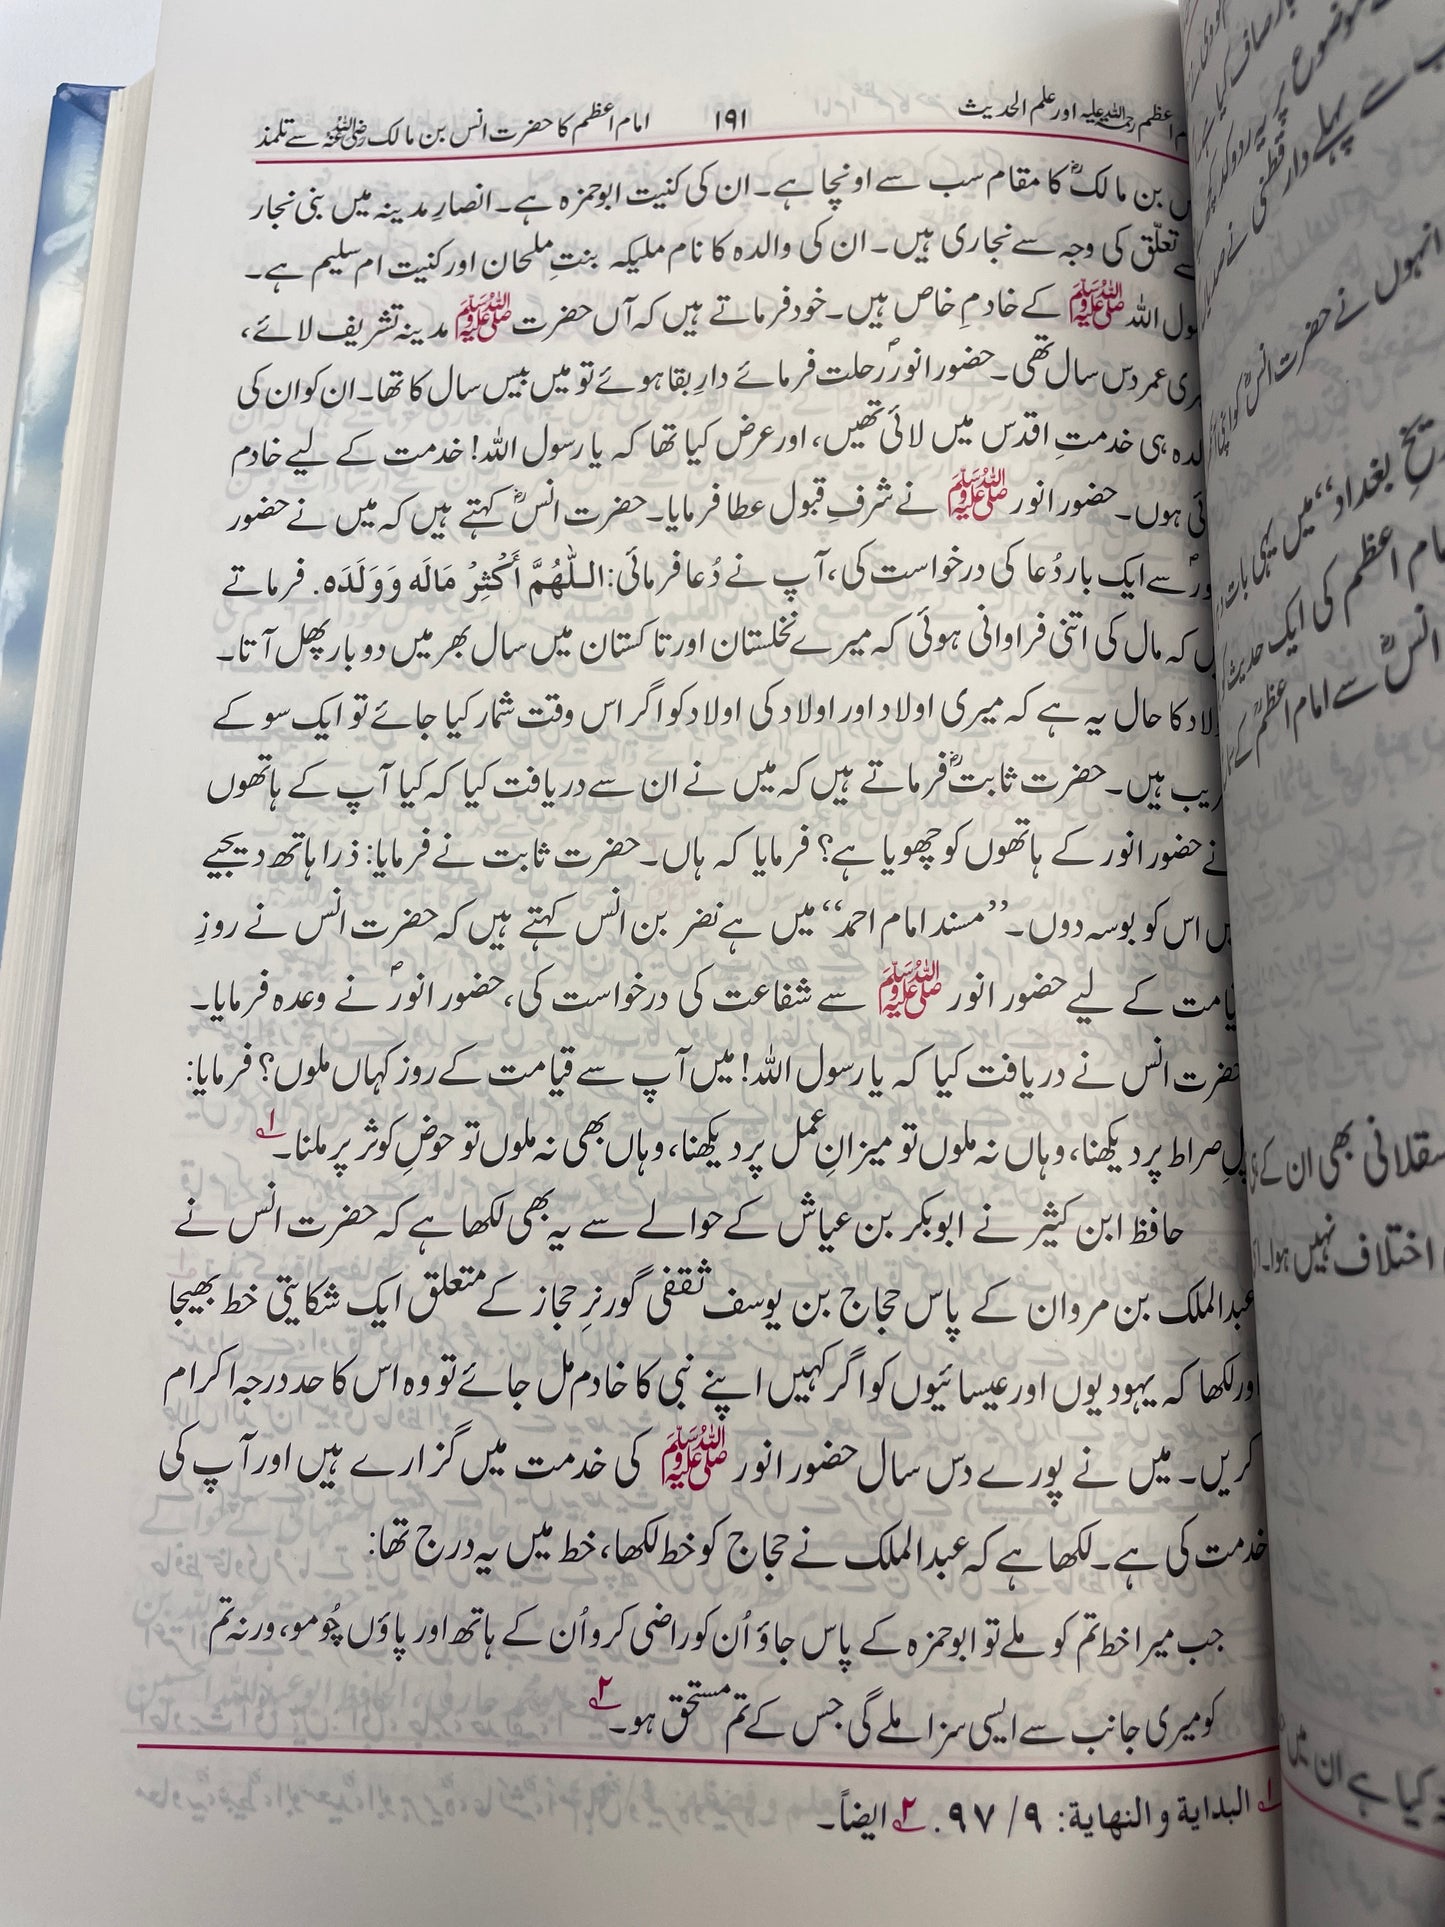 اعظم رحمۃ اللہ علیہ اور علم الحدیث ۱۹۱ امام اعظم کا حضرت انس بن مالک رضی اللہ عنہ سے تلمذ
بن مالکؓ کا مقام سب سے اونچا ہے۔ ان کی کنیت ابوحمزہ ہے۔ انصارِ مدینہ میں بنی نجار
تعلّق کی وجہ سے نجاری ہیں۔ ان کی والدہ کا نام ملیکہ بنتِ ملحان اور کنیت ام سلیم ہے۔
اللہ ﷺ کے خادمِ خاص ہیں۔ خود فرماتے ہیں کہ آں حضرت ﷺ مدینہ تشریف لائے،
عمر دس سال تھی۔ حضور انورؐ رحلت فرمائے دارِ بقا ہوئے تو میں بیس سال کا تھا۔ ان کو ان کی
ہی خدمتِ اقدس میں لائی تھیں، اور عرض کیا تھا کہ یا رسول اللہ! خدمت کے لیے خادم
ہوں۔ حضور انور ﷺ نے شرفِ قبول عطا فرمایا۔ حضرت انسؓ کہتے ہیں کہ میں نے حضور
سے ایک بار دُعا کی درخواست کی، آپ نے دُعا فرمائی: اللّٰهُمَّ أَكْثِرْ مَالَه وَوَلَدَه. فرماتے
کہ مال کی اتنی فراوانی ہوئی کہ میرے نخلستان اور تاکستان میں سال بھر میں دو بار پھل آتا۔
کا حال یہ ہے کہ میری اولاد اور اولاد کی اولاد کو اگر اس وقت شمار کیا جائے تو ایک سو کے
ہیں۔ حضرت ثابتؓ فرماتے ہیں کہ میں نے ان سے دریافت کیا کہ کیا آپ کے ہاتھوں
نے حضور انور کے ہاتھوں کو چھویا ہے؟ فرمایا کہ ہاں۔ حضرت ثابت نے فرمایا: ذرا ہاتھ دیجیے
اس کو بوسہ دوں۔ ’’مسند امام احمد‘‘ میں ہے نضر بن انس کہتے ہیں کہ حضرت انس نے روزِ
کے لیے حضور انور ﷺ سے شفاعت کی درخواست کی، حضور انورؐ نے وعدہ فرمایا۔
حضرت انس نے دریافت کیا کہ یا رسول اللہ! میں آپ سے قیامت کے روز کہاں ملوں؟ فرمایا:
پلِ صراط پر دیکھنا، وہاں نہ ملوں تو میزانِ عمل پر دیکھنا، وہاں بھی نہ ملوں تو حوضِ کوثر پر ملنا۔ ۱
حافظ ابن کثیر نے ابوبکر بن عیاش کے حوالے سے یہ بھی لکھا ہے کہ حضرت انس نے
عبدالملک بن مروان کے پاس حجاج بن یوسف ثقفی گورنرِ حجاز کے متعلق ایک شکایتی خط بھیجا
اور لکھا کہ یہودیوں اور عیسائیوں کو اگر کہیں اپنے نبی کا خادم مل جائے تو وہ اس کا حد درجہ اکرام
کریں۔ میں نے پورے دس سال حضور انور ﷺ کی خدمت میں گزارے ہیں اور آپ کی
خدمت کی ہے۔ لکھا ہے کہ عبدالملک نے حجاج کو خط لکھا، خط میں یہ درج تھا:
جب میرا خط تم کو ملے تو ابوحمزہ کے پاس جاؤ اُن کو راضی کرو اُن کے ہاتھ اور پاؤں چُومو، ورنہ تم
کو میری جانب سے ایسی سزا ملے گی جس کے تم مستحق ہو۔ ۲
۱ البدایة والنهایة: ۹/ ۹۷. ۲ ایضاً۔
انہوں نے حضرت انسؓ کو
بغداد‘‘ میں یہی بات
امام اعظم کی ایک حدیث
انسؓ سے امام اعظمؒ کے
بھی ان کے
اختلاف نہیں ہوا۔
کیا ہے ان میں